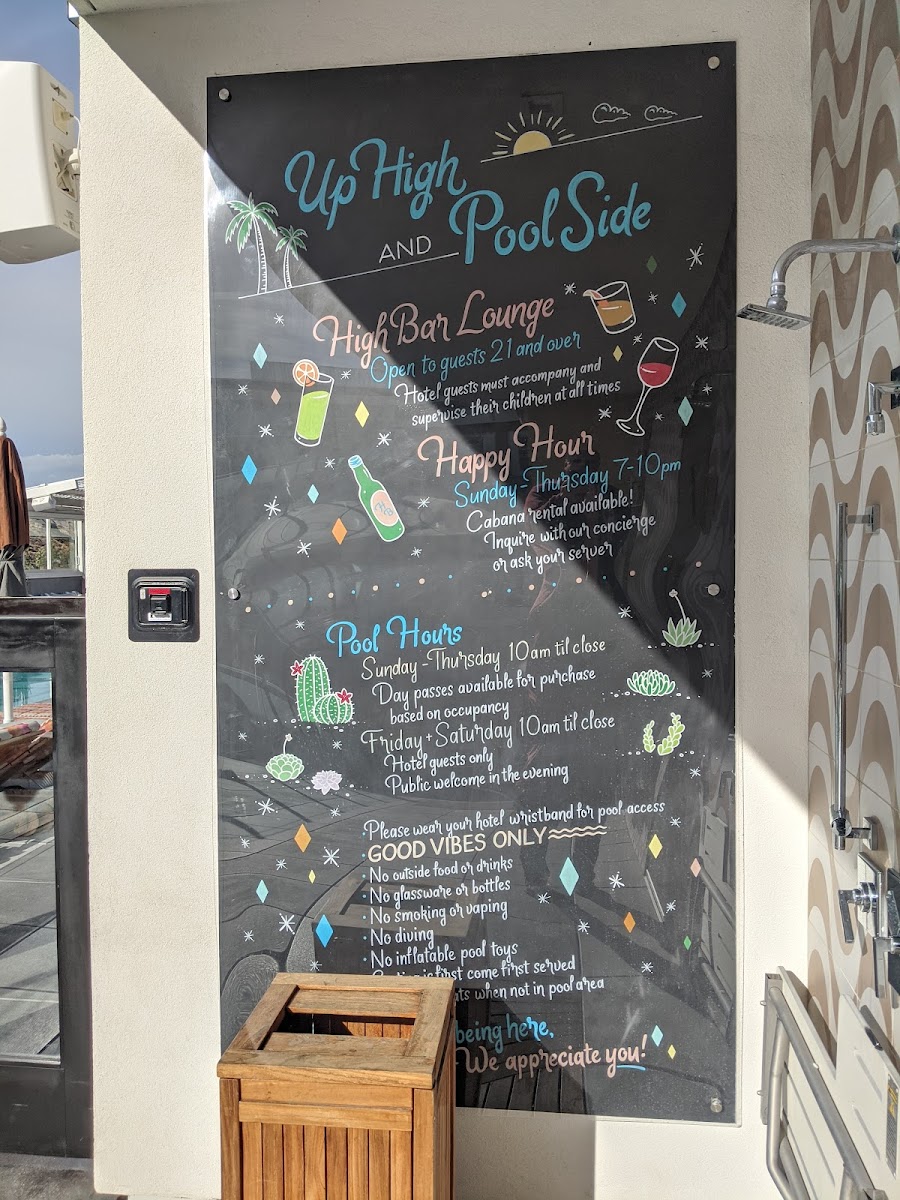 Up High
AND Pool Side
High Bar Lounge
Open to guests 21 and over
Hotel guests must accompany and
supervise their children at all times
Happy Hour
Sunday-Thursday 7-10pm
Cabana rental available!
Inquire with our concierge
or ask your server
Pool Hours
Sunday-Thursday 10am til close
Day passes available for purchase
based on occupancy
Friday + Saturday 10am til close
Hotel guests only
Public welcome in the evening
·Please wear your hotel wristband for pool access
·GOOD VIBES ONLY
·No outside food or drinks
·No glassware or bottles
·No smoking or vaping
·No diving
·No inflatable pool toys
is first come first served
when not in pool area
being here,
We appreciate you!